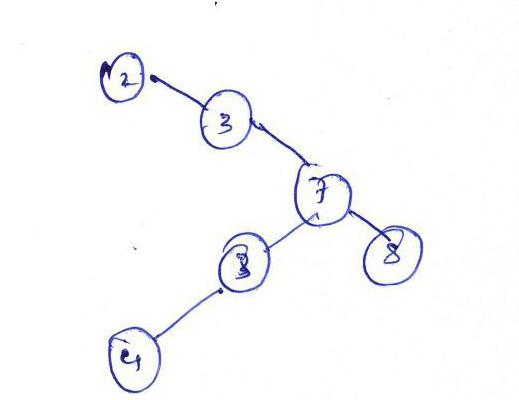 2
3
7
8
4